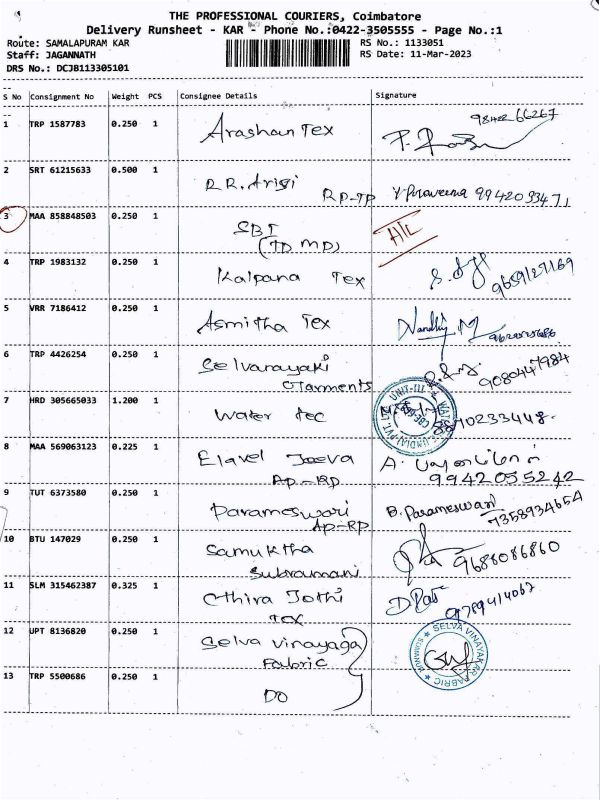 THE PROFESSIONAL COURIERS, Coimbatore
Delivery Runsheet - KAR - Phone No.:0422-3505555 - Page No.:1
Route: SAMALAPURAM KAR RS No.: 1133051
Staff: JAGANNATH RS Date: 11-Mar-2023
DRS No.: DCJB113305101
S No Consignment No Weight PCS Consignee Details Signature
1 TRP 1587783 0.250 1 Arashan Tex 98422 66267
2 SRT 61215633 0.500 1 R.R. Arisi RP-TP 9942093471
3 MAA 858848503 0.250 1 SBI H/L
(TD MD)
4 TRP 1983132 0.250 1 Kalpana Tex 9659127169
5 VRR 7186412 0.250 1 Asmitha Tex Nandhij.M
6 TRP 4426254 0.250 1 Selvanayaki 9080447984
Garments
7 HRD 305665033 1.200 1 Water tec UNIT-III 8870233448
8 MAA 569063123 0.225 1 Elavel Jeeva A.
Ap-RP 9942055242
9 TUT 6373580 0.250 1 Parameswari B. Parameswari
Ap-RP 7358934654
10 BTU 147029 0.250 1 Samuktha 9688086860
Subramani
11 SLM 315462387 0.325 1 Cthira Jothi 9789414067
Tex
12 UPT 8136820 0.250 1 Selva vinayaga SELVA VINAYAKAR FABRIC
Fabric
13 TRP 5500686 0.250 1 DO